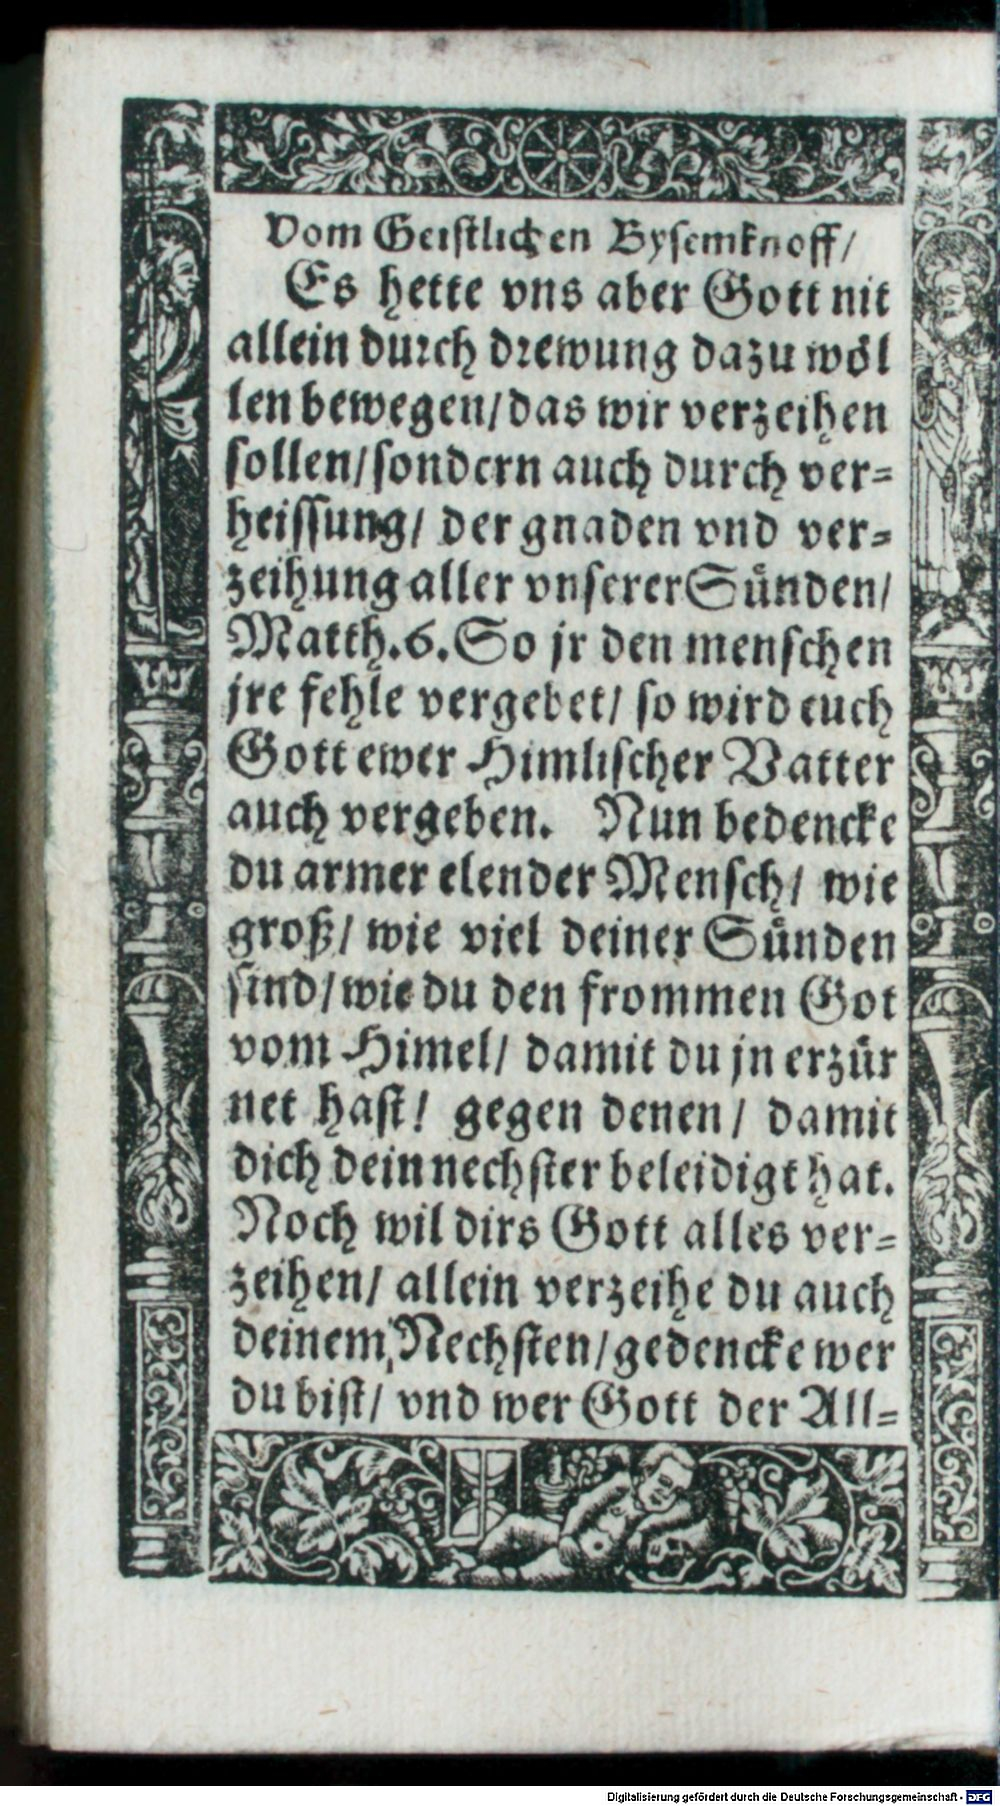 Vom Geistlichen Bysemknoff/
Es hette vns aber Gott nit
allein durch drewung dazu wöl
len bewegen/das wir verzeihen
sollen/sondern auch durch ver=
heissung/ der gnaden vnd ver=
zeihung aller vnserer Sünden/
Matth.6. So jr den menschen
jre fehle vergebet/ so wird euch
Gott ewer Himlischer Vatter
auch vergeben. Nun bedencke
du armer elender Mensch/ wie
groß/ wie viel deiner Sünden
sind/wie du den frommen Got
vom Himel/ damit du jn erzür
net hast/ gegen denen/ damit
dich dein nechster beleidigt hat.
Noch wil dirs Gott alles ver=
zeihen/ allein verzeihe du auch
deinem Nechsten/gedencke wer
du bist/ vnd wer Gott der All=
Digitalisierung gefördert durch die Deutsche Forschungsgemeinschaft - DFG